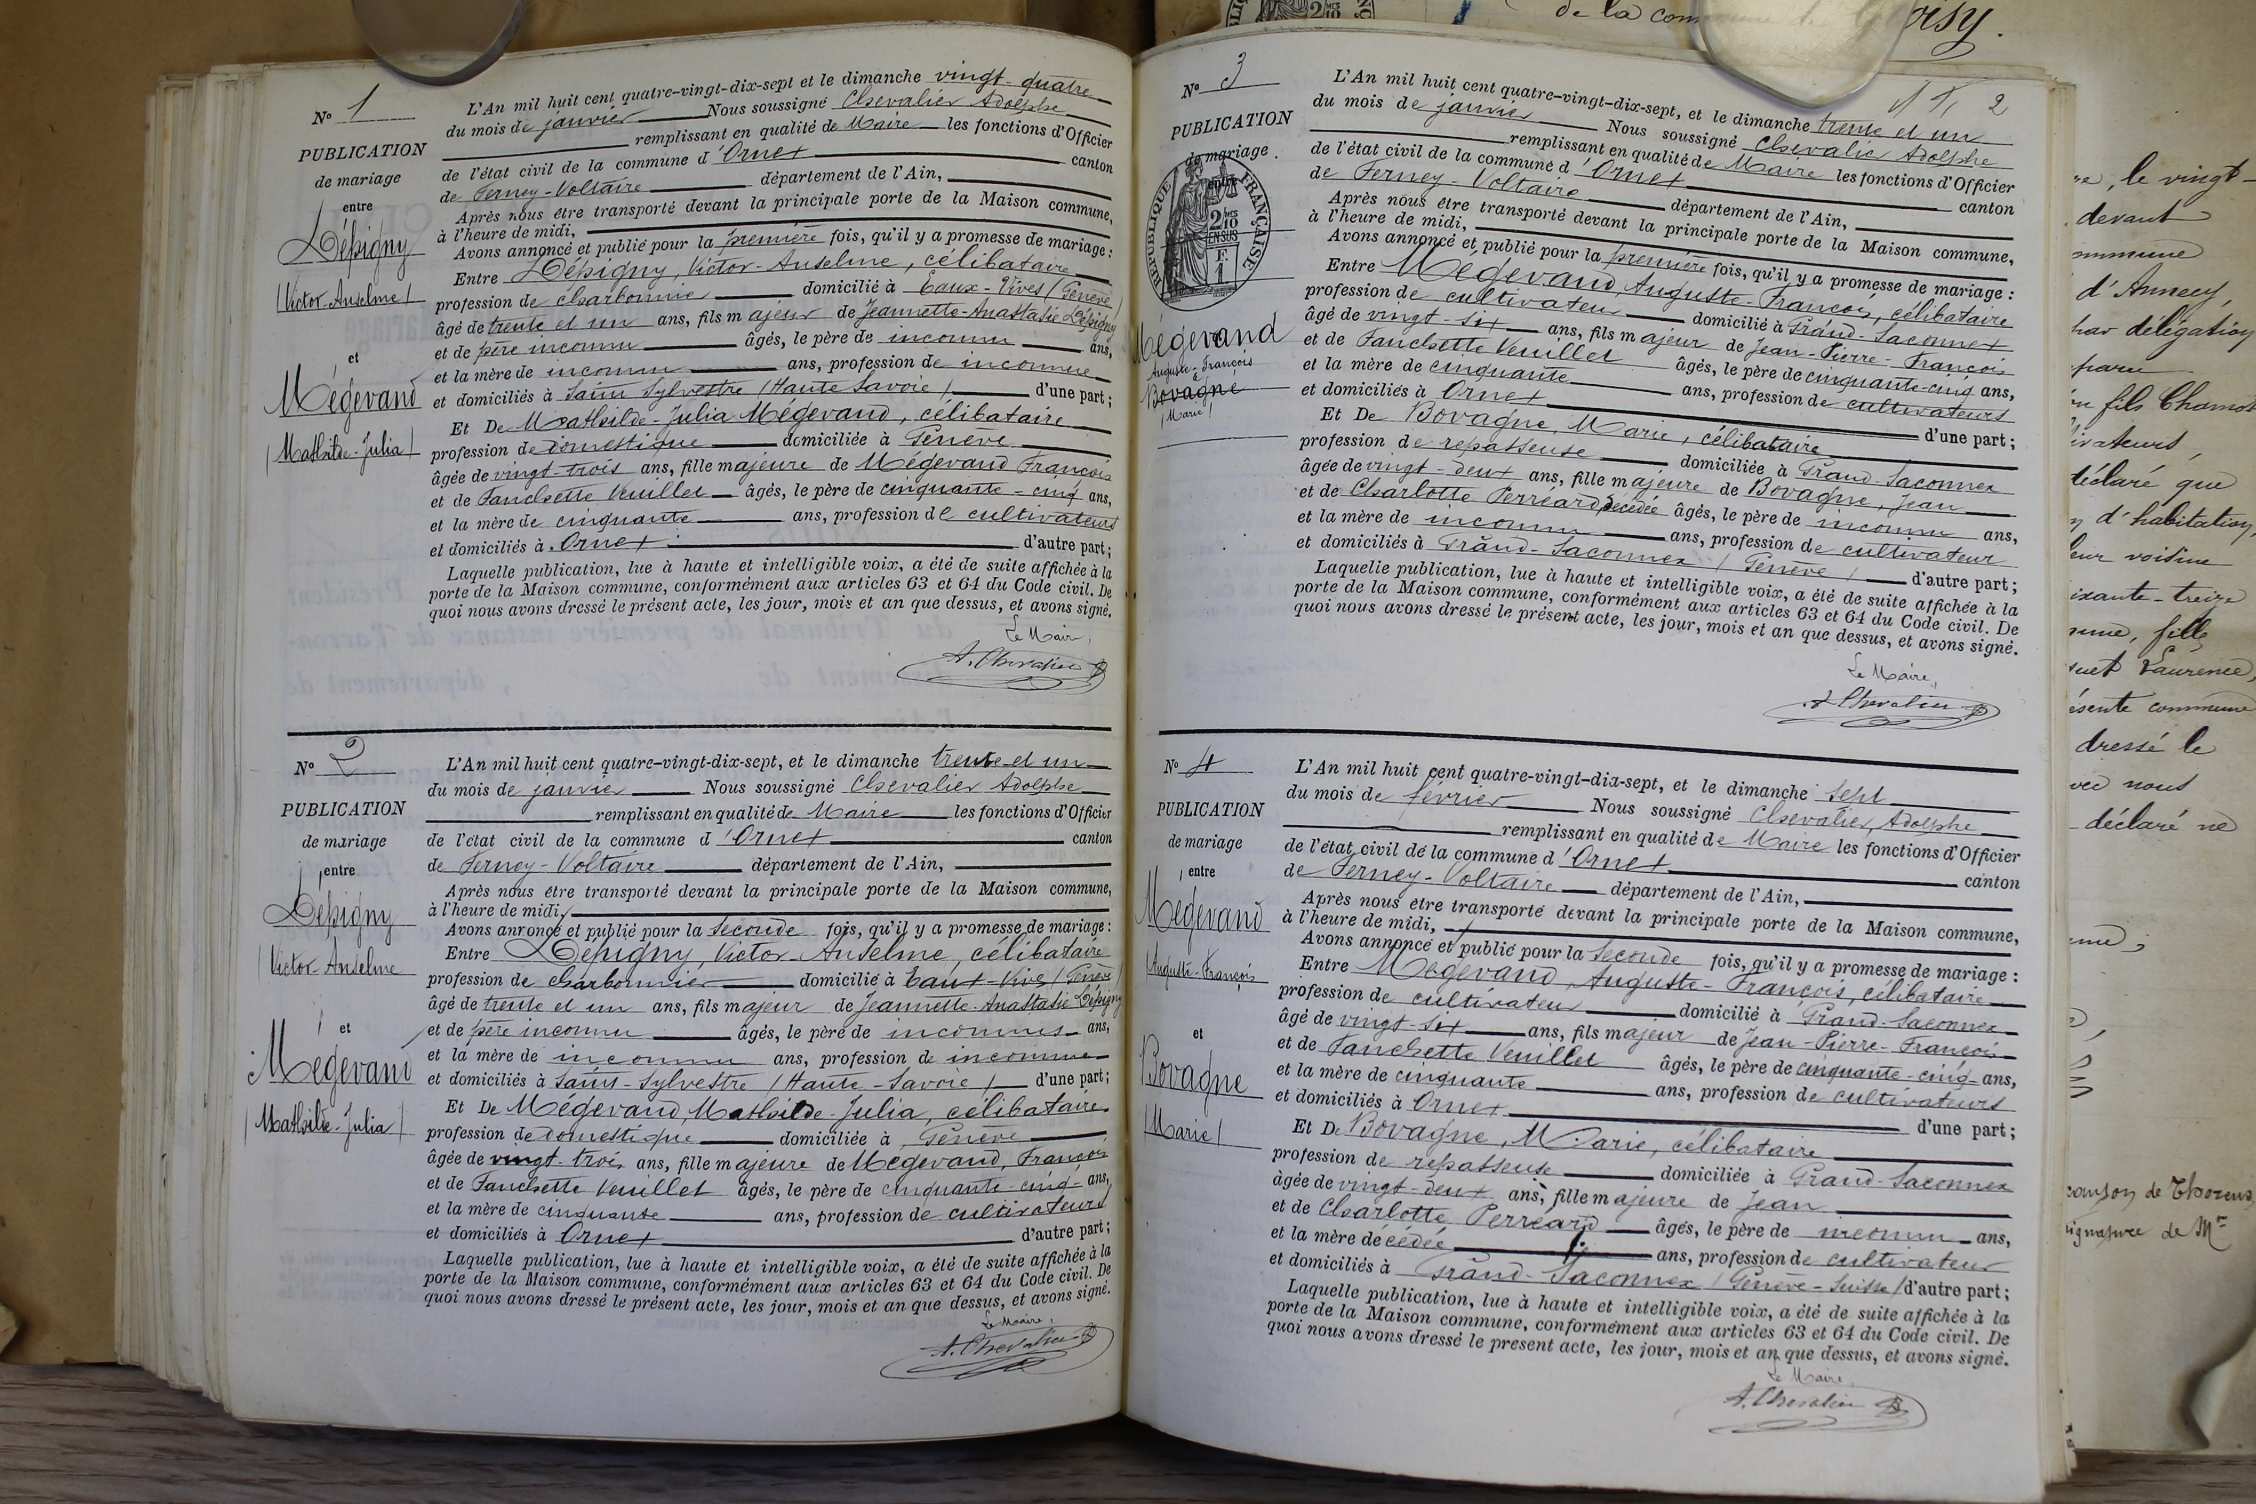 de la commune de
N° 1
PUBLICATION
de mariage
entre
Lépigny
(Victor-Anselme)
et
Mégevand
(Mathilde-Julia)
L'An mil huit cent quatre-vingt-dix-sept et le dimanche vingt-quatre
du mois de janvier Nous soussigné Chevalier Adolphe
remplissant en qualité de Maire les fonctions d'Officier
de l'état civil de la commune d'Ornex canton
de Ferney-Voltaire département de l'Ain,
Après nous être transporté devant la principale porte de la Maison commune,
à l'heure de midi,
Avons annoncé et publié pour la première fois, qu'il y a promesse de mariage :
Entre Lépigny, Victor-Anselme, célibataire
profession de charbonnier domicilié à Eaux-Vives (Genève)
âgé de trente et un ans, fils majeur de Jeannette-Anastasie Lépigny
et de père inconnu âgés, le père de inconnu ans,
et la mère de inconnu ans, profession de inconnue
et domiciliés à Saint Sylvestre (Haute Savoie) d'une part ;
Et De Mathilde-Julia Mégevand, célibataire
profession de domestique domiciliée à Genève
âgée de vingt-trois ans, fille majeure de Mégevand François
et de Fanchette Veuillet âgés, le père de cinquante-cinq ans,
et la mère de cinquante ans, profession de cultivateurs
et domiciliés à Ornex d'autre part ;
Laquelle publication, lue à haute et intelligible voix, a été de suite affichée à la
porte de la Maison commune, conformément aux articles 63 et 64 du Code civil. De
quoi nous avons dressé le présent acte, les jour, mois et an que dessus, et avons signé.
Le Maire,
A. Chevalier
N° 2
PUBLICATION
de mariage
entre
Lépigny
(Victor-Anselme
et
Mégevand
(Mathilde-Julia)
L'An mil huit cent quatre-vingt-dix-sept, et le dimanche trente et un
du mois de janvier Nous soussigné Chevalier Adolphe
remplissant en qualité de Maire les fonctions d'Officier
de l'état civil de la commune d'Ornex canton
de Ferney-Voltaire département de l'Ain,
Après nous être transporté devant la principale porte de la Maison commune,
à l'heure de midi,
Avons annoncé et publié pour la seconde fois, qu'il y a promesse de mariage :
Entre Lépigny, Victor-Anselme, célibataire
profession de charbonnier domicilié à Eaux-Vives (Genève)
âgé de trente et un ans, fils majeur de Jeannette-Anastasie Lépigny
et de père inconnu âgés, le père de inconnus ans,
et la mère de inconnu ans, profession de inconnue
et domiciliés à Saint-Sylvestre (Haute-Savoie) d'une part ;
Et De Mégevand, Mathilde-Julia, célibataire
profession de domestique domiciliée à Genève
âgée de vingt-trois ans, fille majeure de Mégevand, François
et de Fanchette Veuillet âgés, le père de cinquante-cinq ans,
et la mère de cinquante ans, profession de cultivateurs
et domiciliés à Ornex d'autre part ;
Laquelle publication, lue à haute et intelligible voix, a été de suite affichée à la
porte de la Maison commune, conformément aux articles 63 et 64 du Code civil. De
quoi nous avons dressé le présent acte, les jour, mois et an que dessus, et avons signé.
Le Maire,
A. Chevalier
2
N° 3
PUBLICATION
de mariage
RÉPUBLIQUE FRANÇAISE
2/10 MES
EN SUS
F.
1
Mégevand
Auguste-François
&
Bovagne
(Marie)
L'An mil huit cent quatre-vingt-dix-sept, et le dimanche trente et un
du mois de janvier Nous soussigné Chevalier Adolphe
remplissant en qualité de Maire les fonctions d'Officier
de l'état civil de la commune d'Ornex canton
de Ferney-Voltaire département de l'Ain,
Après nous être transporté devant la principale porte de la Maison commune,
à l'heure de midi,
Avons annoncé et publié pour la première fois, qu'il y a promesse de mariage :
Entre Mégevand, Auguste-François, célibataire
profession de cultivateur domicilié à Grand-Saconnex
âgé de vingt-six ans, fils majeur de Jean-Pierre-François
et de Fanchette Veuillet âgés, le père de cinquante-cinq ans,
et la mère de cinquante ans, profession de cultivateurs
et domiciliés à Ornex d'une part ;
Et De Bovagne, Marie, célibataire
profession de repasseuse domiciliée à Grand-Saconnex
âgée de vingt-deux ans, fille majeure de Bovagne, Jean
et de Charlotte Perréard, décédée âgés, le père de inconnu ans,
et la mère de inconnu ans, profession de cultivateur
et domiciliés à Grand-Saconnex (Genève) d'autre part ;
Laquelle publication, lue à haute et intelligible voix, a été de suite affichée à la
porte de la Maison commune, conformément aux articles 63 et 64 du Code civil. De
quoi nous avons dressé le présent acte, les jour, mois et an que dessus, et avons signé.
Le Maire,
A. Chevalier
N° 4
PUBLICATION
de mariage
entre
Mégevand
(Auguste-François
et
Bovagne
(Marie)
L'An mil huit cent quatre-vingt-dix-sept, et le dimanche sept
du mois de février Nous soussigné Chevalier, Adolphe
remplissant en qualité de Maire les fonctions d'Officier
de l'état civil de la commune d'Ornex canton
de Ferney-Voltaire département de l'Ain,
Après nous être transporté devant la principale porte de la Maison commune,
à l'heure de midi,
Avons annoncé et publié pour la seconde fois, qu'il y a promesse de mariage :
Entre Mégevand, Auguste-François, célibataire
profession de cultivateur domicilié à Grand-Saconnex
âgé de vingt-six ans, fils majeur de Jean-Pierre-François
et de Fanchette Veuillet âgés, le père de cinquante-cinq ans,
et la mère de cinquante ans, profession de cultivateurs
et domiciliés à Ornex d'une part ;
Et De Bovagne, Marie, célibataire
profession de repasseuse domiciliée à Grand-Saconnex
âgée de vingt-deux ans, fille majeure de Jean
et de Charlotte Perréard âgés, le père de inconnu ans,
et la mère décédée ans, profession de cultivateur
et domiciliés à Grand-Saconnex (Genève-Suisse) d'autre part ;
Laquelle publication, lue à haute et intelligible voix, a été de suite affichée à la
porte de la Maison commune, conformément aux articles 63 et 64 du Code civil. De
quoi nous avons dressé le présent acte, les jour, mois et an que dessus, et avons signé.
Le Maire,
A. Chevalier
le vingt-
devant
d'Annecy,
par délégation
fils
déclaré que
d'habitation,
voisine
fille
Laurence,
commune
dressé le
nous
déclaré ne
de Thorens,
signature de Mr